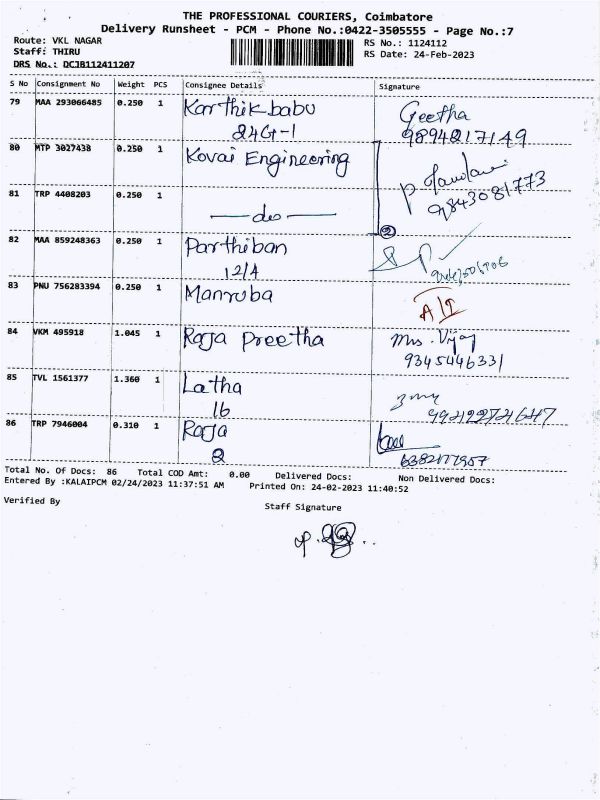 THE PROFESSIONAL COURIERS, Coimbatore
Delivery Runsheet - PCM - Phone No.:0422-3505555 - Page No.:7
Route: VKL NAGAR
Staff: THIRU
DRS No.: DCJB112411207
RS No.: 1124112
RS Date: 24-Feb-2023
S No Consignment No Weight PCS Consignee Details Signature
79 MAA 293066485 0.250 1 Karthikbabu Geetha
24G-1 9894217149
80 MTP 3027438 0.250 1 Kovai Engineering
81 TRP 4408203 0.250 1 9843081773
— do — 2
82 MAA 859248363 0.250 1 Parthiban
12/A
83 PNU 756283394 0.250 1 Manruba
84 VKM 495918 1.045 1 Raja Preetha Mrs. Vijay
9345446331
85 TVL 1561377 1.360 1 Latha
16
86 TRP 7946004 0.310 1 Raja
2
Total No. Of Docs: 86 Total COD Amt: 0.00 Delivered Docs: Non Delivered Docs:
Entered By :KALAIPCM 02/24/2023 11:37:51 AM Printed On: 24-02-2023 11:40:52
Verified By
Staff Signature